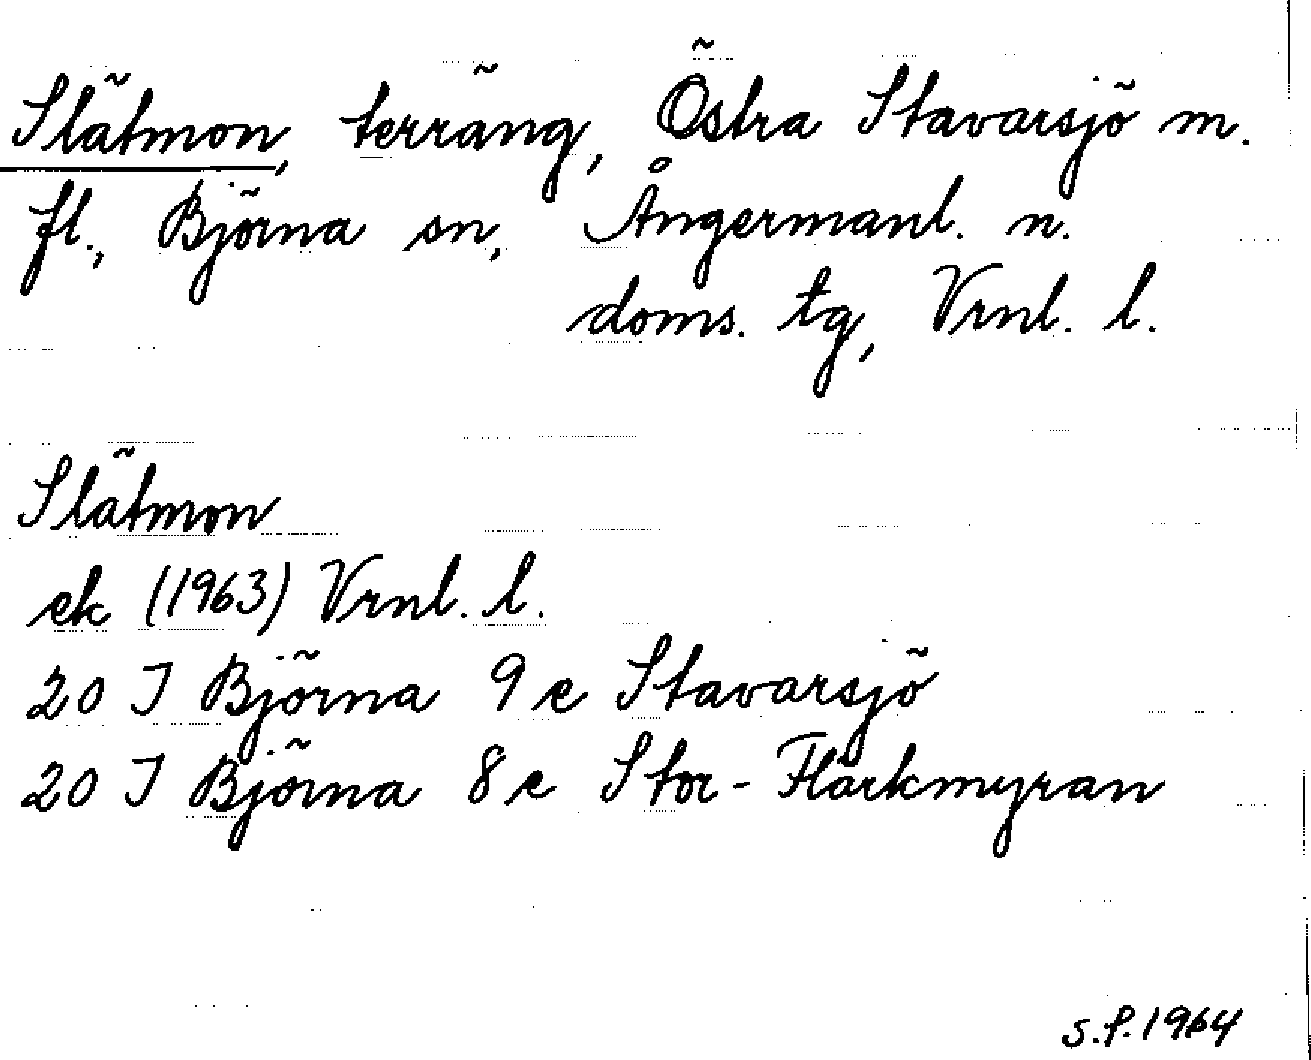 Slätmon, terräng, Östra Stavarsjö m.
fl., Björna sn, Ångermanl. n.
doms. tg, Vrnl. l.
Slätmon
ek (1963) Vrnl. l.
20 I Björna 9 e Stavarsjö
20 I Björna 8 e Stor-Flärkmyran
S.P. 1964